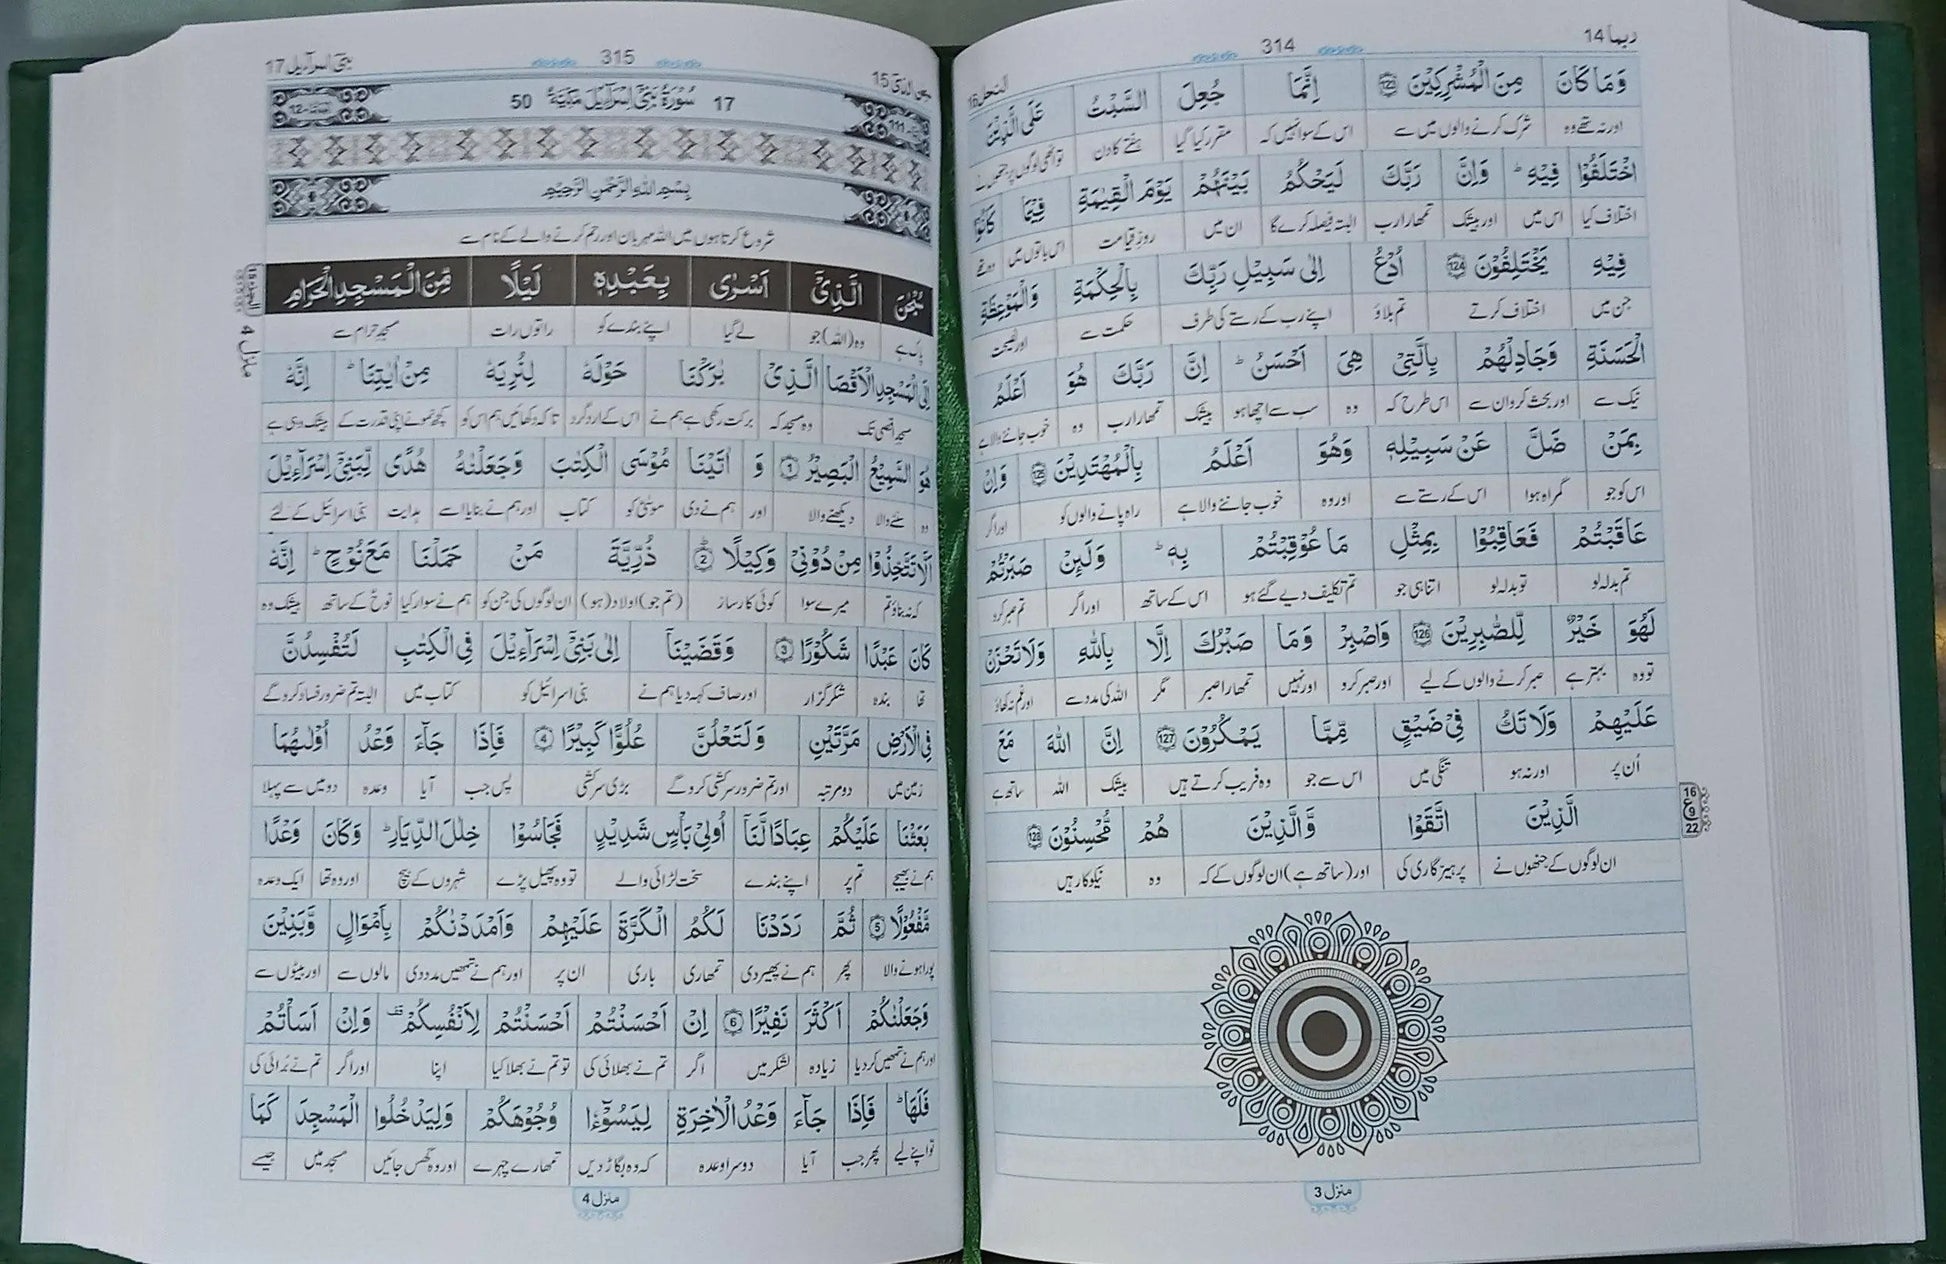 ربما 14
314
النحل 16
وَمَا كَانَ مِنَ الْمُشْرِكِيْنَ 123 اِنَّمَا جُعِلَ السَّبْتُ عَلَى الَّذِيْنَ
اور نہ تھے وہ شرک کرنے والوں میں سے اس کے سوا نہیں کہ مقرر کیا گیا ہفتے کا دن تو انھی لوگوں پر جنھوں نے
اخْتَلَفُوْا فِيْهِ ؕ وَاِنَّ رَبَّكَ لَيَحْكُمُ بَيْنَهُمْ يَوْمَ الْقِيٰمَةِ فِيْمَا كَانُوْا
اختلاف کیا اس میں اور بیشک تمھارا رب البتہ فیصلہ کرے گا ان میں روز قیامت اس باتوں میں وہ تھے
فِيْهِ يَخْتَلِفُوْنَ 124 اُدْعُ اِلٰى سَبِيْلِ رَبِّكَ بِالْحِكْمَةِ وَالْمَوْعِظَةِ
جن میں اختلاف کرتے تم بلاؤ اپنے رب کے رستے کی طرف حکمت سے اور نصیحت
الْحَسَنَةِ وَجَادِلْهُمْ بِالَّتِيْ هِيَ اَحْسَنُ ؕ اِنَّ رَبَّكَ هُوَ اَعْلَمُ
نیک سے اور بحث کرو ان سے اس طرح کہ وہ سب سے اچھا ہو بیشک تمھارا رب وہ خوب جاننے والا ہے
بِمَنْ ضَلَّ عَنْ سَبِيْلِهٖ وَهُوَ اَعْلَمُ بِالْمُهْتَدِيْنَ 125 وَاِنْ
اس کو جو گمراہ ہوا اس کے رستے سے اور وہ خوب جاننے والا ہے راہ پانے والوں کو اور اگر
عَاقَبْتُمْ فَعَاقِبُوْا بِمِثْلِ مَا عُوْقِبْتُمْ بِهٖ ؕ وَلَئِنْ صَبَرْتُمْ
تم بدلہ لو تو بدلہ لو اتنا ہی جو تم تکلیف دیے گئے ہو اس کے ساتھ اور اگر تم صبر کرو
لَهُوَ خَيْرٌ لِّلصّٰبِرِيْنَ 126 وَاصْبِرْ وَمَا صَبْرُكَ اِلَّا بِاللّٰهِ وَلَا تَحْزَنْ
تو وہ بہتر ہے صبر کرنے والوں کے لیے اور صبر کرو اور نہیں تمھارا صبر مگر اللہ کی مدد سے اور غم نہ کھاؤ
عَلَيْهِمْ وَلَا تَكُ فِيْ ضَيْقٍ مِّمَّا يَمْكُرُوْنَ 127 اِنَّ اللّٰهَ مَعَ
اُن پر اور نہ ہو تنگی میں اس سے جو وہ فریب کرتے ہیں بیشک اللہ ساتھ ہے
الَّذِيْنَ اتَّقَوْا وَّالَّذِيْنَ هُمْ مُّحْسِنُوْنَ 128
ان لوگوں کے جنھوں نے پرہیزگاری کی اور (ساتھ ہے) ان لوگوں کے کہ وہ نیکوکار ہیں
16
ع
9
22
منزل 3
315
بنی اسرآءیل 17
17 سُوْرَةُ بَنِيْٓ اِسْرَآءِيْلَ مَكِّيَّةٌ 50
بِسْمِ اللّٰهِ الرَّحْمٰنِ الرَّحِيْمِ
شروع کرتا ہوں میں اللہ مہربان اور رحم کرنے والے کے نام سے
سُبْحٰنَ الَّذِيْٓ اَسْرٰى بِعَبْدِهٖ لَيْلًا مِّنَ الْمَسْجِدِ الْحَرَامِ
پاک ہے وہ (اللہ) جو لے گیا اپنے بندے کو راتوں رات مسجد حرام سے
منزل 4
اِلَى الْمَسْجِدِ الْاَقْصَا الَّذِيْ بٰرَكْنَا حَوْلَهٗ لِنُرِيَهٗ مِنْ اٰيٰتِنَا ؕ اِنَّهٗ
مسجد اقصیٰ تک وہ مسجد کہ برکت رکھی ہے ہم نے اس کے ارد گرد تاکہ دکھائیں ہم اس کو کچھ نمونے اپنی قدرت کے بیشک وہی ہے
هُوَ السَّمِيْعُ الْبَصِيْرُ 1 وَ اٰتَيْنَا مُوْسَى الْكِتٰبَ وَجَعَلْنٰهُ هُدًى لِّبَنِيْٓ اِسْرَآءِيْلَ
وہ سننے والا دیکھنے والا اور ہم نے دی موسیٰ کو کتاب اور ہم نے بنایا اسے ہدایت بنی اسرائیل کے لئے
اَلَّا تَتَّخِذُوْا مِنْ دُوْنِيْ وَكِيْلًا 2 ذُرِّيَّةَ مَنْ حَمَلْنَا مَعَ نُوْحٍ ؕ اِنَّهٗ
کہ نہ بناؤ تم میرے سوا کوئی کارساز (تم جو) اولاد (ہو) ان لوگوں کی جن کو ہم نے سوار کیا نوح کے ساتھ بیشک وہ
كَانَ عَبْدًا شَكُوْرًا 3 وَقَضَيْنَآ اِلٰى بَنِيْٓ اِسْرَآءِيْلَ فِي الْكِتٰبِ لَتُفْسِدُنَّ
تھا بندہ شکر گزار اور صاف کہہ دیا ہم نے بنی اسرائیل کو کتاب میں البتہ تم ضرور فساد کرو گے
فِي الْاَرْضِ مَرَّتَيْنِ وَلَتَعْلُنَّ عُلُوًّا كَبِيْرًا 4 فَاِذَا جَآءَ وَعْدُ اُوْلٰىهُمَا
زمین میں دو مرتبہ اور تم ضرور سرکشی کرو گے بڑی سرکشی پس جب آیا وعدہ دو میں سے پہلا
بَعَثْنَا عَلَيْكُمْ عِبَادًا لَّنَآ اُولِيْ بَاْسٍ شَدِيْدٍ فَجَاسُوْا خِلٰلَ الدِّيَارِ ؕ وَكَانَ وَعْدًا
ہم نے بھیجے تم پر اپنے بندے سخت لڑائی والے تو وہ پھیل پڑے شہروں کے بیچ اور وہ تھا ایک وعدہ
مَّفْعُوْلًا 5 ثُمَّ رَدَدْنَا لَكُمُ الْكَرَّةَ عَلَيْهِمْ وَاَمْدَدْنٰكُمْ بِاَمْوَالٍ وَّبَنِيْنَ
پورا ہونے والا پھر ہم نے پھیر دی تمھاری باری ان پر اور ہم نے تمھیں مدد دی مالوں سے اور بیٹوں سے
وَجَعَلْنٰكُمْ اَكْثَرَ نَفِيْرًا 6 اِنْ اَحْسَنْتُمْ اَحْسَنْتُمْ لِاَنْفُسِكُمْ ۫ وَاِنْ اَسَاْتُمْ
اور ہم نے تمھیں کر دیا زیادہ لشکر میں اگر تم نے بھلائی کی تو تم نے بھلا کیا اپنا اور اگر تم نے بُرائی کی
فَلَهَا ؕ فَاِذَا جَآءَ وَعْدُ الْاٰخِرَةِ لِيَسُوْٓءٗا وُجُوْهَكُمْ وَلِيَدْخُلُوا الْمَسْجِدَ كَمَا
تو اپنے لیے پھر جب آیا دوسرا وعدہ کہ وہ بگاڑ دیں تمھارے چہرے اور وہ گھس جائیں مسجد میں جیسے
منزل 4